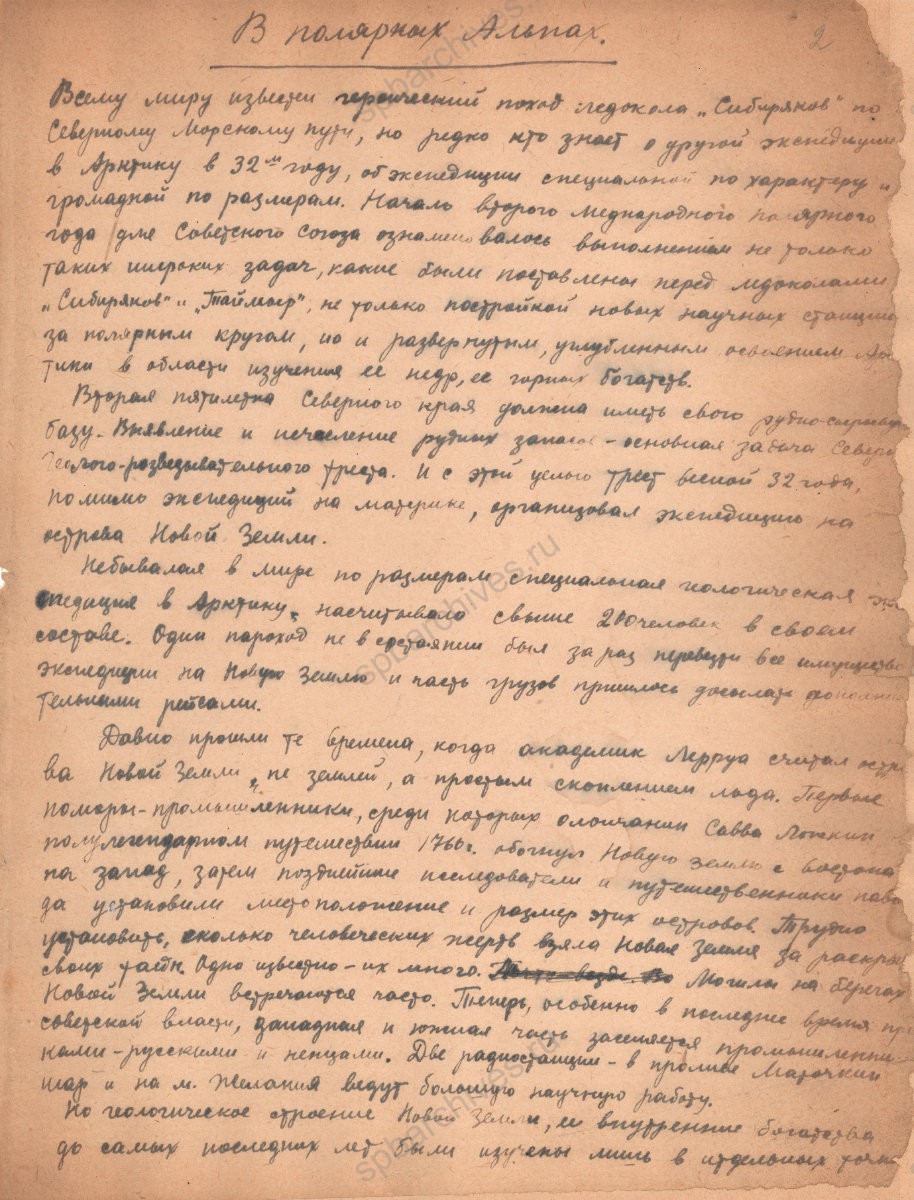 В полярных Альпах.
2
Всему миру известен героический поход ледокола „Сибиряков" по
Северному Морскому пути, но редко кто знает о другой экспедиции
в Арктику в 32-м году, об экспедиции специальной по характеру и
громадной по размерам. Начало второго полярного
года для Советского Союза ознаменовалось выполнением не только
таких широких задач, какие были поставлены перед ледоколами
„Сибиряков" и „Таймыр", не только постройкой новых научных станций
за полярным кругом, но и развернутым, углубленным освоением Ар
тики в области изучения ее недр, ее горных богатств.
Вторая пятилетка Северного края должна иметь свою
базу. Выявление и исчисление рудных запасов – основная задача Северо
Геолого-розведывательного треста. И с этой целью трест весной 32 года,
помимо экспедиций на материке, организовал экспедицию на
острова Новой Земли.
Небывалая в мире по размерам специальная геологическая эк
спедиция в Арктику насчитывало свыше 200 человек в своем
составе. Один пароход не в состоянии был за раз перевезти все имущество
экспедиции на Новую Землю и часть грузов пришлось досылать дополни
тельными рейсами.
Давно прошли те времена, когда академик Лерруа считал остро
ва Новой Земли „не землей, а простым скоплением льда. Первые
поморы-промышленники, среди которых олончанин Савва Лошкин
полулегендарном путешествии 1760г. обогнул Новую землю с востока
на запад, затем позднейшие последователи и путешественники навс
да установили местоположение и размер этих островов. Трудно
установить, сколько человеческих жертв взяла Новая Земля за раскры
своих тайн. Одно известно – их много. Могилы на берегах
Новой Земли встречаются часто. Теперь, особенно в последнее время при
советской власти, западная и южная часть заселяется промышленни-
ками – русскими и ненцами. Две радиостанции – в проливе Маточкин
шар и на м. Желания ведут большую научную работу.
Но геологическое строение Новой Земли, ее внутренние богатства
до самых последних лет были изучены лишь в отдельных точка
spbarchives.ru
spbarchives.ru
spbarchives.ru